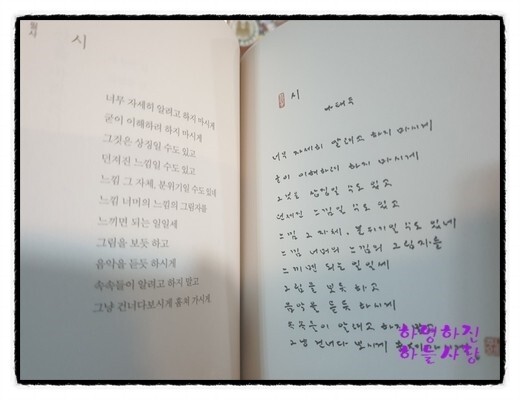 시
너무 자세히 알려고 하지 마시게
굳이 이해하려 하지 마시게
그것은 상징일 수도 있고
던져진 느낌일 수도 있고
느낌 그 자체, 분위기일 수도 있네
느낌 너머의 느낌의 그림자를
느끼면 되는 일일세
그림을 보듯 하고
음악을 듣듯 하시게
속속들이 알려고 하지 말고
그냥 건너다보시게 훔쳐 가시게
시
나태주
너무 자세히 알려고 하지 마시게
굳이 이해하려 하지 마시게
그것은 상징일 수도 있고
던져진 느낌일 수도 있고
느낌 그 자체, 분위기일 수도 있네
느낌 너머의 느낌의 그림자를
느끼면 되는 일일세
그림을 보듯 하고
음악을 듣듯 하시게
속속들이 알려고 하지
그냥 건너다 보시게
하영하진
하늘사랑